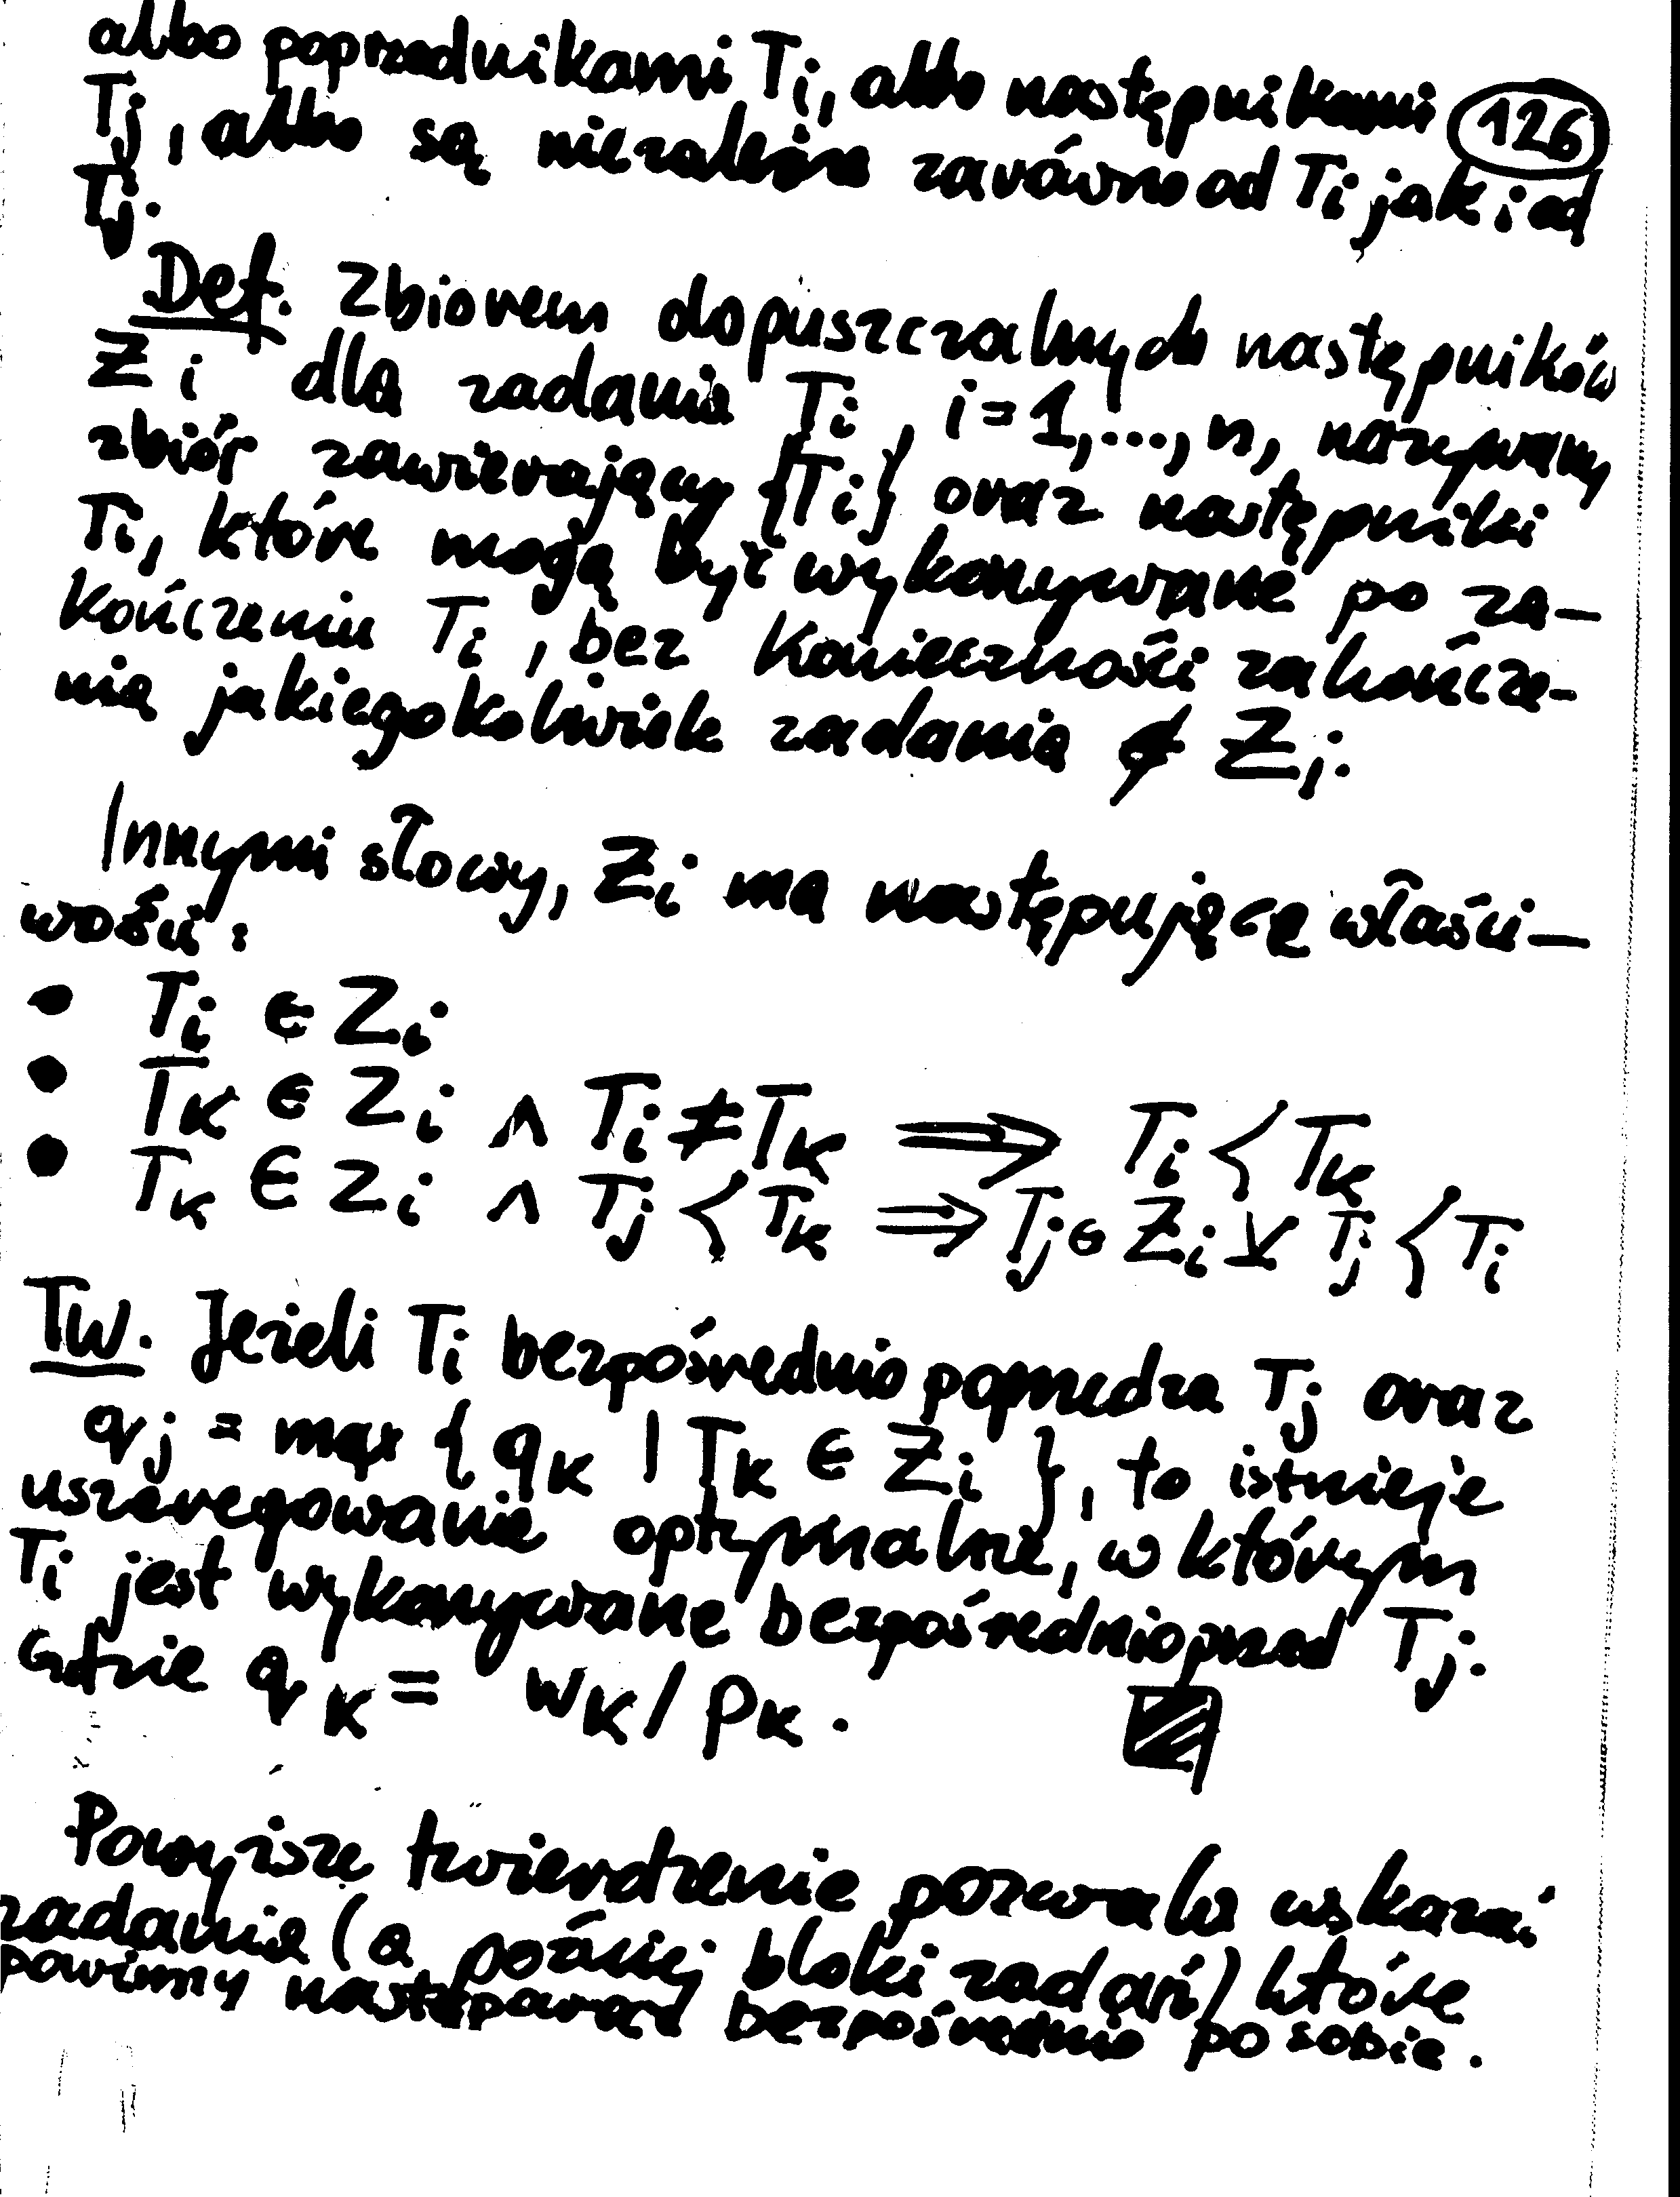 albo poprzednikami Ti, albo następnikami 126
Tj, albo są niezależne zarówno od Ti jak i od
Tj.
Def. Zbiorem dopuszczalnych następników
Zi dla zadania Ti, i=1,...,n, nazywamy
zbiór zawierający {Ti} oraz następniki
Ti, które mogą być wykonywane po za-
kończeniu Ti, bez konieczności zakończe-
nia jakiegokolwiek zadania ∉ Zi.
Innymi słowy, Zi ma następujące właści-
wości:
• Ti ∈ Zi
• Tk ∈ Zi ∧ Ti ≠ Tk ⟹ Ti ≺ Tk
• Tk ∈ Zi ∧ Tj ≺ Tk ⟹ Tj ∈ Zi ⊻ Tj ≺ Ti
Tw. Jeżeli Ti bezpośrednio poprzedza Tj oraz
qj = max {qk | Tk ∈ Zi}, to istnieje
uszeregowanie optymalne, w którym
Ti jest wykonywane bezpośrednio przed Tj.
Gdzie qk = wk/pk.
Powyższe twierdzenie pozwala wskazać
zadania (a później bloki zadań) które
powinny następować bezpośrednio po sobie.